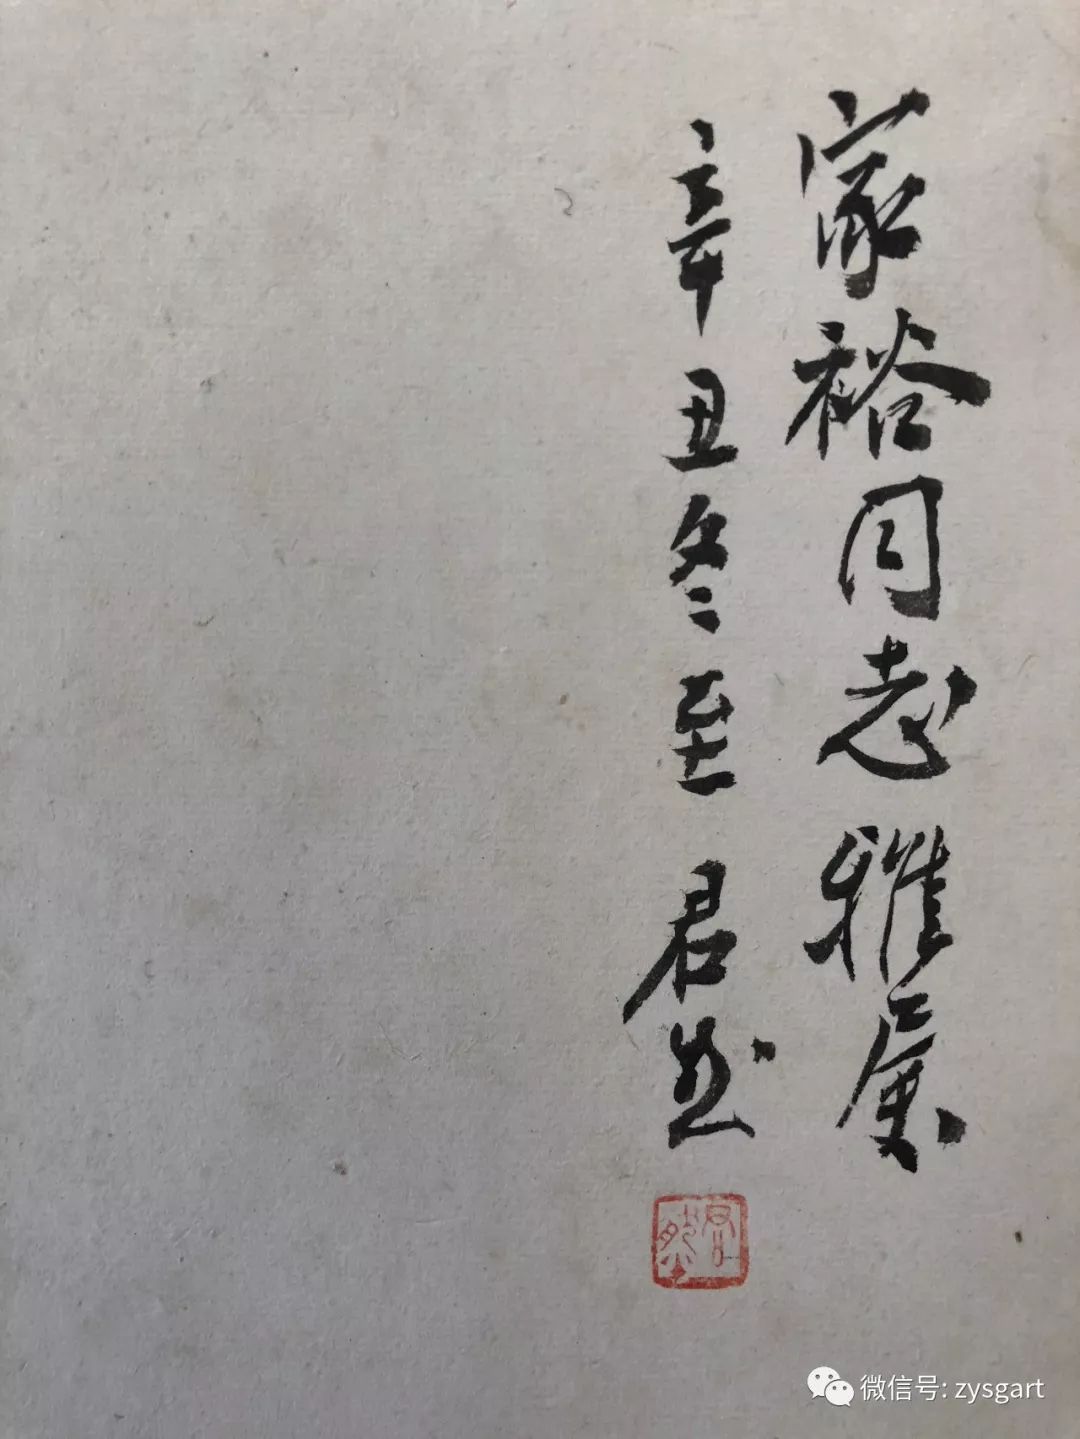 家裕同志雅属
辛丑冬至 君然
君然
微信号: zysgart